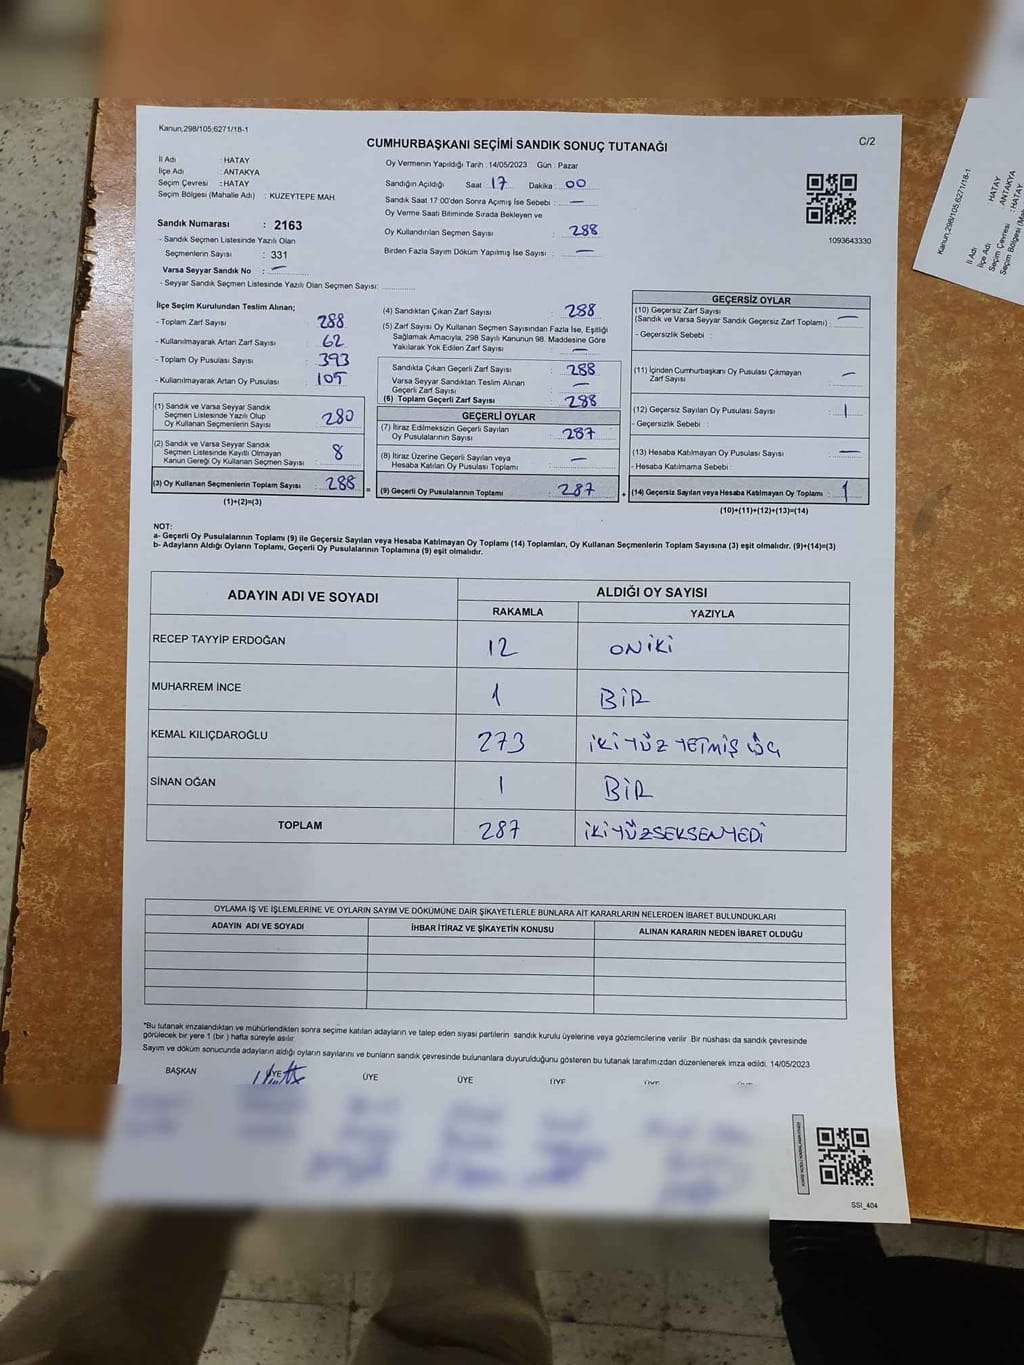 Kanun;298/105;6271/18-1
CUMHURBAŞKANI SEÇİMİ SANDIK SONUÇ TUTANAĞI
C/2
İl Adı : HATAY
İlçe Adı : ANTAKYA
Seçim Çevresi : HATAY
Seçim Bölgesi (Mahalle Adı) : KUZEYTEPE MAH.
Sandık Numarası : 2163
- Sandık Seçmen Listesinde Yazılı Olan
Seçmenlerin Sayısı : 331
Varsa Seyyar Sandık No : —
- Seyyar Sandık Seçmen Listesinde Yazılı Olan Seçmen Sayısı:
Oy Vermenin Yapıldığı Tarih : 14/05/2023 Gün : Pazar
Sandığın Açıldığı Saat : 17 Dakika : 00
Sandık Saat 17.00'den Sonra Açımış İse Sebebi : —
Oy Verme Saati Bitiminde Sırada Bekleyen ve
Oy Kullandırılan Seçmen Sayısı : 288
Birden Fazla Sayım Döküm Yapılmış İse Sayısı : —
1093643330
İlçe Seçim Kurulundan Teslim Alınan;
- Toplam Zarf Sayısı 288
- Kullanılmayarak Artan Zarf Sayısı : 62
- Toplam Oy Pusulası Sayısı 393
- Kullanılmayarak Artan Oy Pusulası : 105
(1) Sandık ve Varsa Seyyar Sandık
Seçmen Listesinde Yazılı Olup
Oy Kullanan Seçmenlerin Sayısı : 280
(2) Sandık ve Varsa Seyyar Sandık
Seçmen Listesinde Kayıtlı Olmayan
Kanun Gereği Oy Kullanan Seçmen Sayısı : 8
(3) Oy Kullanan Seçmenlerin Toplam Sayısı : 288 =
(1)+(2)=(3)
(4) Sandıktan Çıkan Zarf Sayısı : 288
(5) Zarf Sayısı Oy Kullanan Seçmen Sayısından Fazla İse, Eşitliği
Sağlamak Amacıyla; 298 Sayılı Kanunun 98. Maddesine Göre
Yakılarak Yok Edilen Zarf Sayısı : —
Sandıkta Çıkan Geçerli Zarf Sayısı : 288
Varsa Seyyar Sandıktan Teslim Alınan
Geçerli Zarf Sayısı : —
(6) Toplam Geçerli Zarf Sayısı : 288
GEÇERLİ OYLAR
(7) İtiraz Edilmeksizin Geçerli Sayılan
Oy Pusulalarının Sayısı : 287
(8) İtiraz Üzerine Geçerli Sayılan veya
Hesaba Katılan Oy Pusulası Toplamı : —
(9) Geçerli Oy Pusulalarının Toplamı : 287 +
GEÇERSİZ OYLAR
(10) Geçersiz Zarf Sayısı
(Sandık ve Varsa Seyyar Sandık Geçersiz Zarf Toplamı) : —
- Geçersizlik Sebebi :
(11) İçinden Cumhurbaşkanı Oy Pusulası Çıkmayan
Zarf Sayısı : —
(12) Geçersiz Sayılan Oy Pusulası Sayısı : 1
- Geçersizlik Sebebi :
(13) Hesaba Katılmayan Oy Pusulası Sayısı : —
- Hesaba Katılmama Sebebi :
(14) Geçersiz Sayılan veya Hesaba Katılmayan Oy Toplamı : 1
(10)+(11)+(12)+(13)=(14)
NOT:
a- Geçerli Oy Pusulalarının Toplamı (9) ile Geçersiz Sayılan veya Hesaba Katılmayan Oy Toplamı (14) Toplamları, Oy Kullanan Seçmenlerin Toplam Sayısına (3) eşit olmalıdır. (9)+(14)=(3)
b- Adayların Aldığı Oyların Toplamı, Geçerli Oy Pusulalarının Toplamına (9) eşit olmalıdır.
ADAYIN ADI VE SOYADI ALDIĞI OY SAYISI
RAKAMLA YAZIYLA
RECEP TAYYİP ERDOĞAN 12 ONİKİ
MUHARREM İNCE 1 BİR
KEMAL KILIÇDAROĞLU 273 İKİYÜZ YETMİŞ ÜÇ
SİNAN OĞAN 1 BİR
TOPLAM 287 İKİYÜZSEKSENYEDİ
OYLAMA İŞ VE İŞLEMLERİNE VE OYLARIN SAYIM VE DÖKÜMÜNE DAİR ŞİKAYETLERLE BUNLARA AİT KARARLARIN NELERDEN İBARET BULUNDUKLARI
ADAYIN ADI VE SOYADI İHBAR İTİRAZ VE ŞİKAYETİN KONUSU ALINAN KARARIN NEDEN İBARET OLDUĞU
*Bu tutanak imzalandıktan ve mühürlendikten sonra seçime katılan adayların ve talep eden siyasi partilerin sandık kurulu üyelerine veya gözlemcilerine verilir .Bir nüshası da sandık çevresinde
görülecek bir yere 1 (bir ) hafta süreyle asılır.
Sayım ve döküm sonucunda adayların aldığı oyların sayılarını ve bunların sandık çevresinde bulunanlara duyurulduğunu gösteren bu tutanak tarafımızdan düzenlenerek imza edildi. 14/05/2023
BAŞKAN ÜYE ÜYE ÜYE ÜYE ÜYE ÜYE
SSI_404
Kanun;298/105;6271/18-1
İl Adı : HATAY
İlçe Adı : ANTAKYA
Seçim Çevresi : HATAY
Seçim Bölgesi